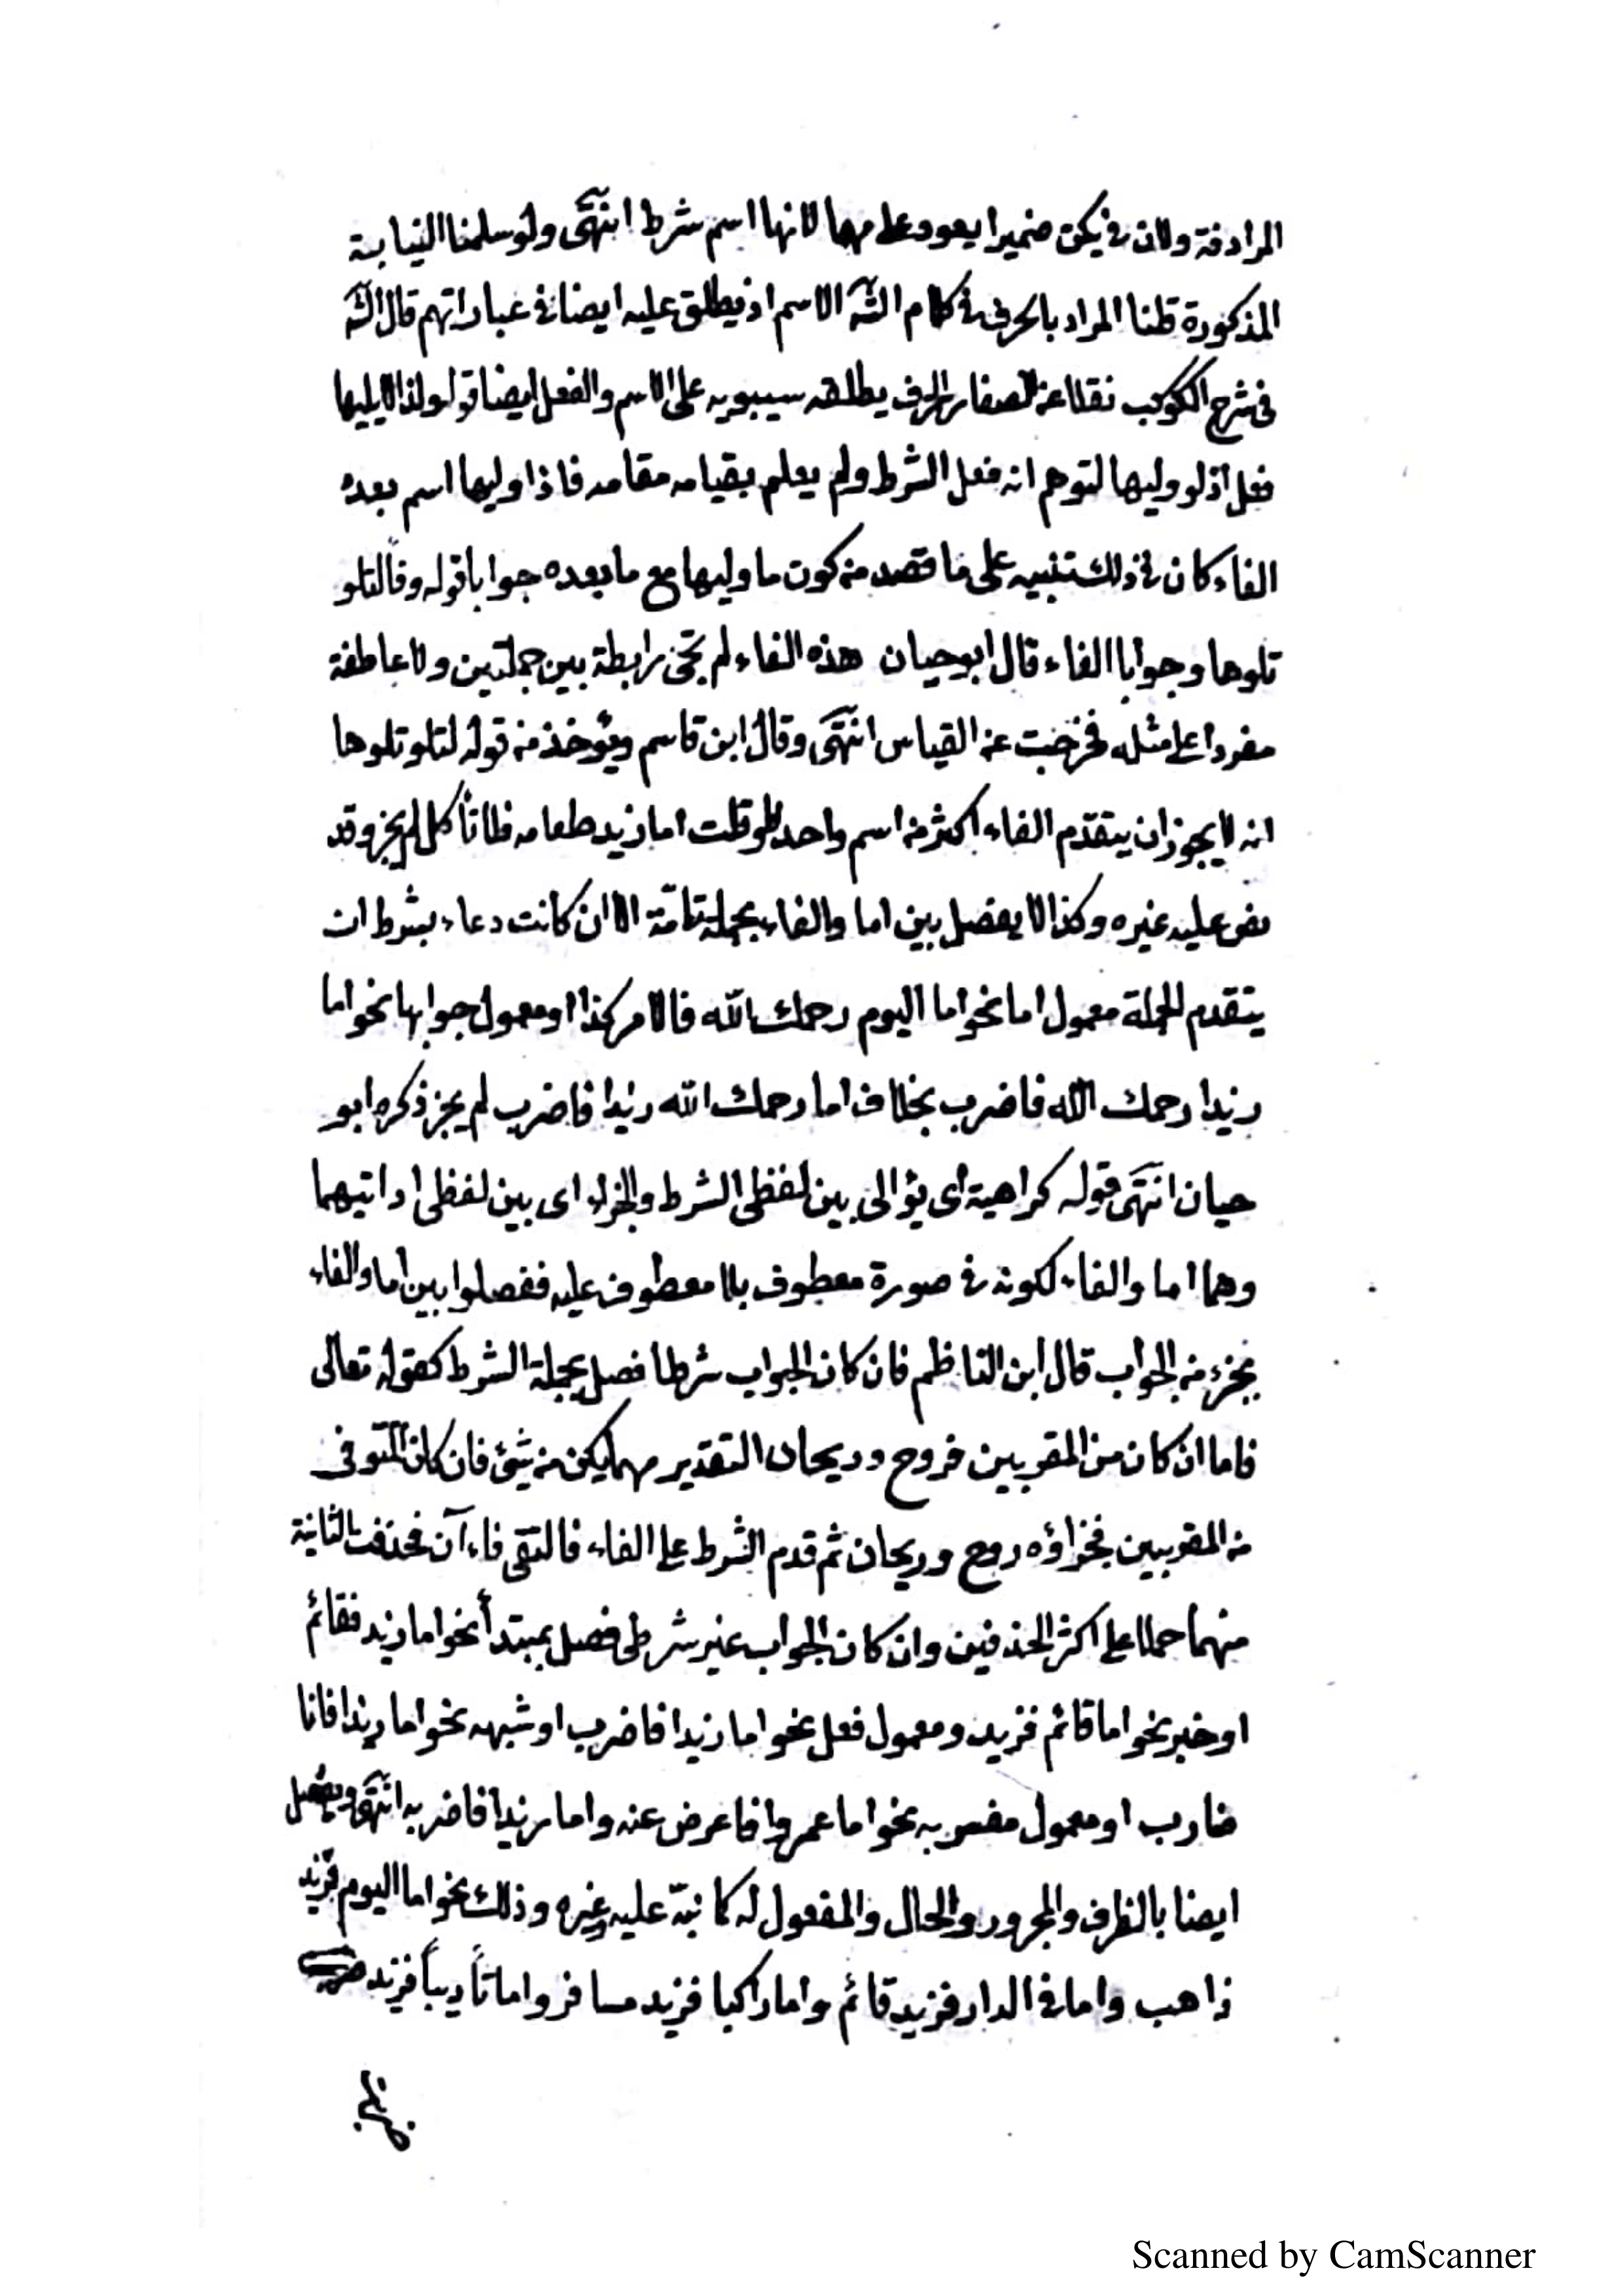 المرادفة ولان في يكن ضميرا يعود على مهما لانها اسم شرط انتهى ولو سلمنا النيابة
المذكورة قلنا المراد بالحرف في كلام الش الاسم اذ يطلق عليه ايضا في عباراتهم قال الش
في شرح الكوكب نقلا عن الصفار الحرف يطلقه سيبويه على الاسم والفعل ايضا قوله ولذا لا يليها
فعل اذ لو وليها لتوهم انه فعل الشرط ولم يعلم بقيامه مقامه فاذا وليها اسم بعده
الفاء كان في ذلك تنبيه على ما قصد من كون ما وليها مع ما بعده جوابا قوله وفا لتلو
تلوها وجوابا الفاء قال ابو حيان هذه الفاء لم تجئ رابطة بين جملتين ولا عاطفة
مفردا على مثله فخرجت عن القياس انتهى وقال ابن قاسم ويؤخذ من قوله لتلو تلوها
انه لا يجوز ان يتقدم الفاء اكثر من اسم واحد فلو قلت اما زيد طعامه فلا تأكل لم يجز وقد
نص عليه غيره وكذا لا يفصل بين اما والفاء بجملة تامّة الا ان كانت دعاء بشرط ان
يتقدم الجملة معمول اما نحو اما اليوم رحمك الله فالامر كذا او معمول جوابها نحو اما
زيدا رحمك الله فاضرب بخلاف اما رحمك الله زيدا فاضرب لم يجز ذكره ابو
حيان انتهى قوله كراهية اى يؤالى بين لفظى الشرط والجزاء اى بين لفظى اداتيهما
وهما اما والفاء لكونه في صورة معطوف بلا معطوف عليه ففصلوا بين اما والفاء
بجزء من الجواب قال ابن الناظم فان كان الجواب شرطا فصل بجملة الشرط كقوله تعالى
فاما ان كان من المقربين فروح وريحان التقدير مهما يكن من شئ فان كان المتوفى
من المقربين فجزاؤه روح وريحان ثم قدم الشرط على الفاء فالتقى فاءآن فحذفت الثانية
منهما حملا على اكثر الحذفين وان كان الجواب غير شرطى فصل بمبتدأ نحو اما زيد فقائم
او خبر نحو اما قائم فزيد ومعمول فعل نحو اما زيدا فاضرب او شبهه نحو اما زيدا فانا
ضارب او معمول مفسر به نحو اما عمروا فاعرض عنه واما زيدا فاضربه انتهى ويفصل
ايضا بالظرف والمجرور والحال والمفعول له كما نبّه عليه غيره وذلك نحو اما اليوم فزيد
ذاهب واما في الدار فزيد قائم واما راكبا فزيد مسافر واما تأديباً فزيد
Scanned by CamScanner